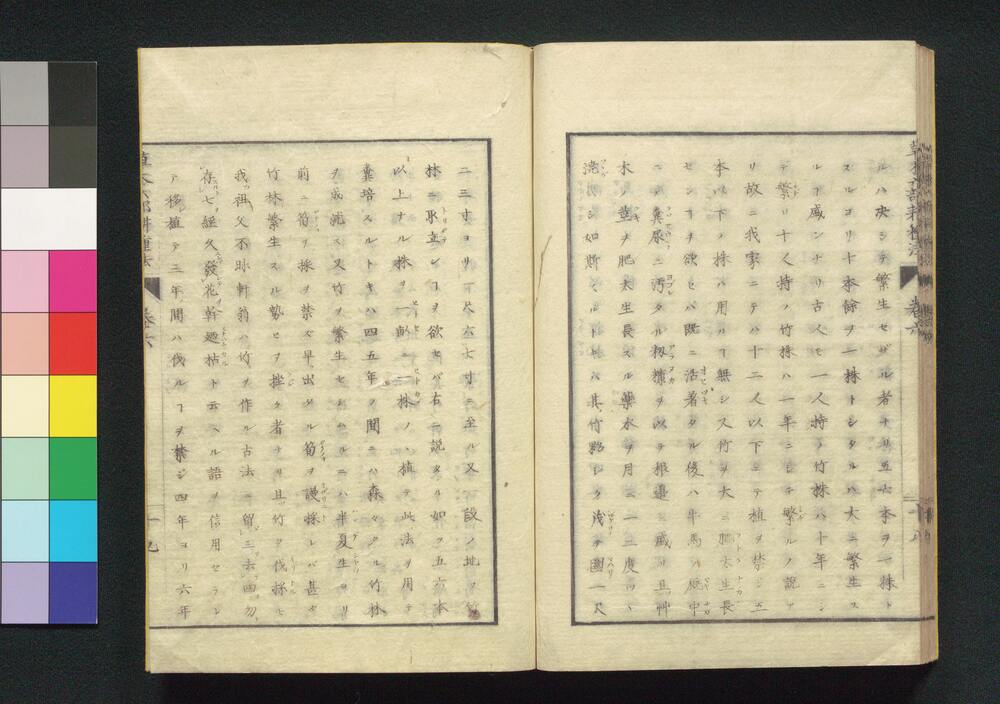 ルハ决シテ繁生セザル者ナリ五六本ヲ一株ト
スルヨリ十本餘ヲ一株トシタルハ大ニ繁生ス
ルヿ盛ンナリ古人モ一人持ノ竹株ハ十年ニシ
テ繁リ十人持ノ竹株ハ一年ニシテ繁ルノ說ア
リ故ニ我家ニテハ十二人以下ニテ植ヲ禁シ五
本以下ノ株ハ用ルヿ無シ又竹ヲ大ニ肥太生長
センヿヲ欲セバ既ニ活着タル後ハ牛馬ノ厩中
ニテ糞尿ニ汚タル籾糠ヲ以テ根邊ニ盛リ且艸
木ノ莖ヲ肥太生長スル藥水ヲ月ニ一二度ツヽ
澆ベシ如斯スルトキハ其竹夥シク茂テ圍一尺
二三寸ヨリ一尺六七寸ニ至ル又設ノ地ヲ
林ニ取立ンヿヲ欲セバ右ニ說タル如ク五六本
以上ナル株ヲ一畝ニ二株ノ植テ此法ヲ用テ
糞培スルトキハ四五年ノ間ニハ森々タル竹林
ヲ成就ス又竹ヲ繁生セシムルニハ半夏生ヨリ
前ニ筍ヲ採ヲ禁ズ早出タル筍ヲ謾採レバ甚タ
竹林繁生スル勢ヒヲ挫ク者ナリ且竹ヲ伐採モ
我祖父不昧軒翁ハ竹ヲ作ル古法ニ留三去四勿
存七經久發花幹廼枯ト云ヘル語ヲ信用セラレ
テ移植テ三年ノ間ハ伐ルヿヲ禁シ四年ヨリ六年
卷六
一九